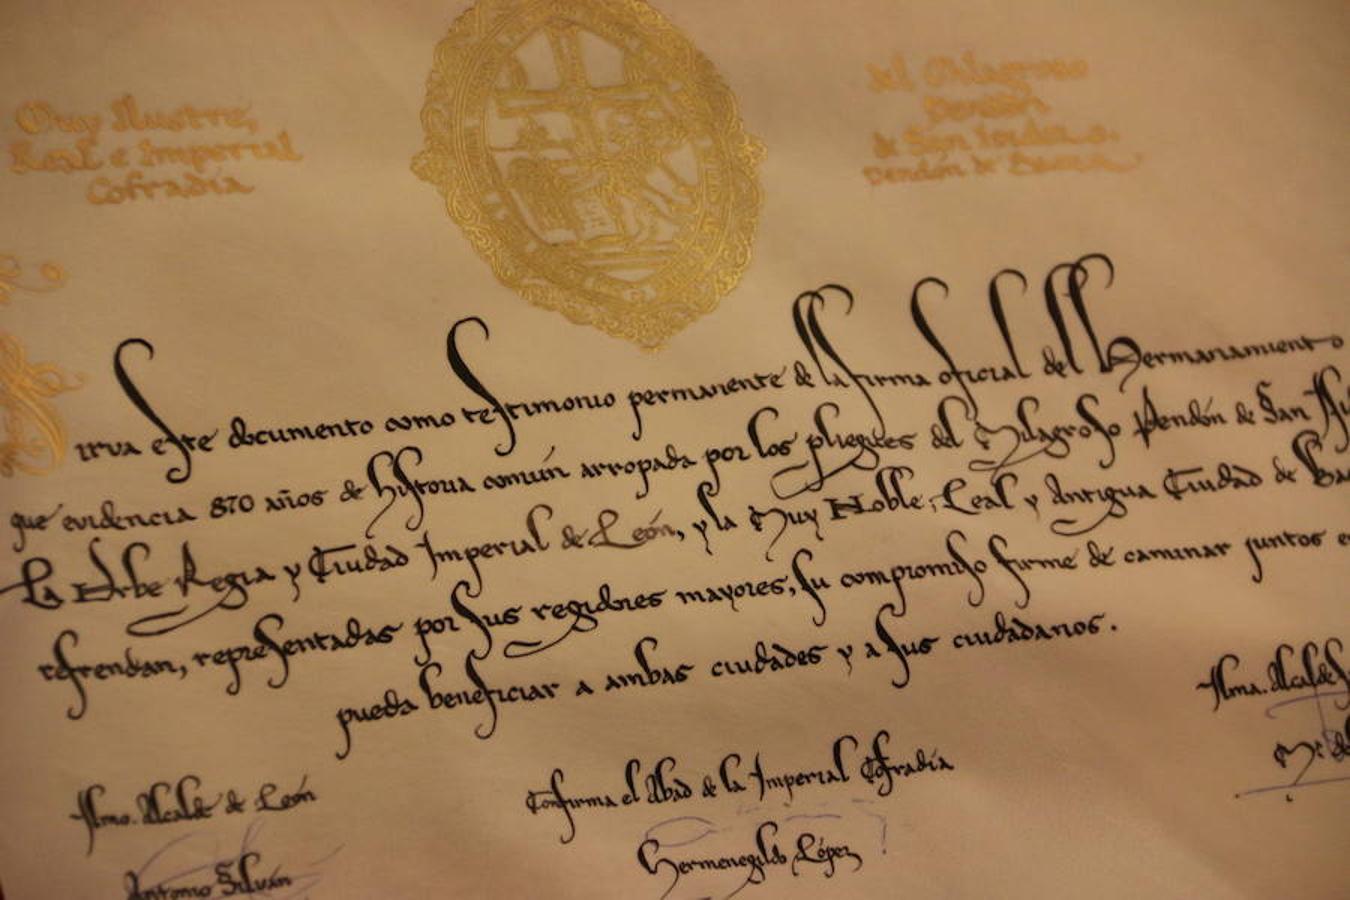 Muy Ilustre,
Real e Imperial
Cofradía
del Milagroso
Pendón
de San Isidoro o
Pendón de Baeza
Sirva este documento como testimonio permanente de la firma oficial del Hermanamiento
que evidencia 870 años de historia común arropada por los pliegues del Milagroso Pendón de San
La Urbe Regia y Ciudad Imperial de León, y la Muy Noble, Leal y Antigua Ciudad de
refrendan, representadas por sus regidores mayores, su compromiso firme de caminar juntos
pueda beneficiar a ambas ciudades y a sus ciudadanos.
Ilmo. Alcalde de León
Confirma el Abad de la Imperial Cofradía
Ilma. Alcaldesa
Antonio Silván
Hermenegildo López
Mª